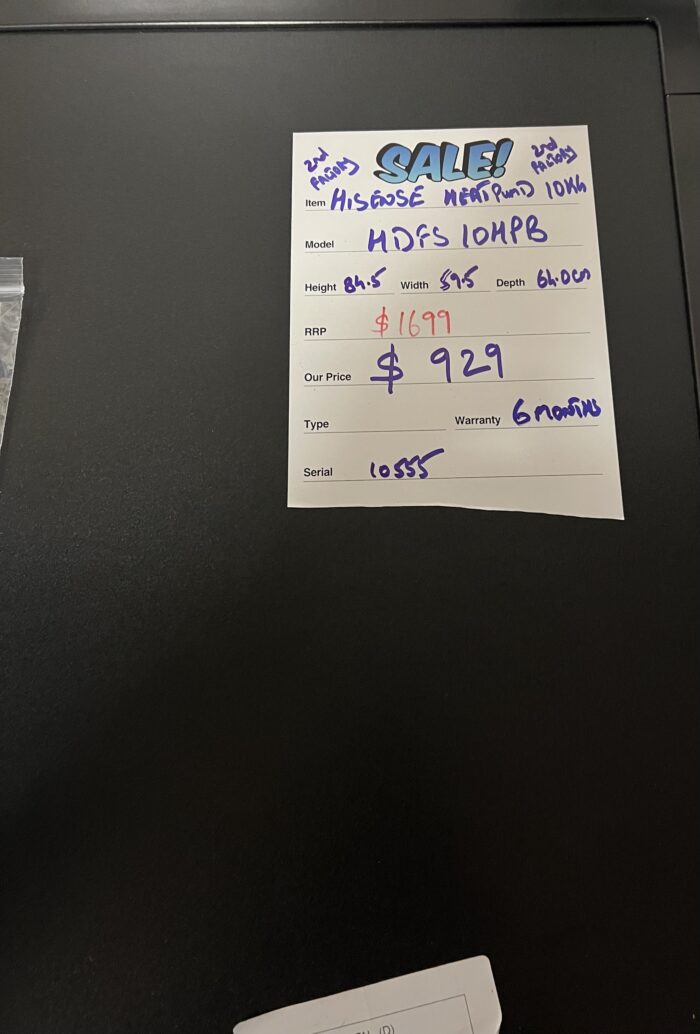 2nd FACTORY SALE! 2nd FACTORY
Item HISENSE HEAT PUMP 10KG
Model HDFS 10HPB
Height 84.5 Width 59.5 Depth 64.0cm
RRP $1699
Our Price $ 929
Type Warranty 6 MONTHS
Serial 10555
(D)